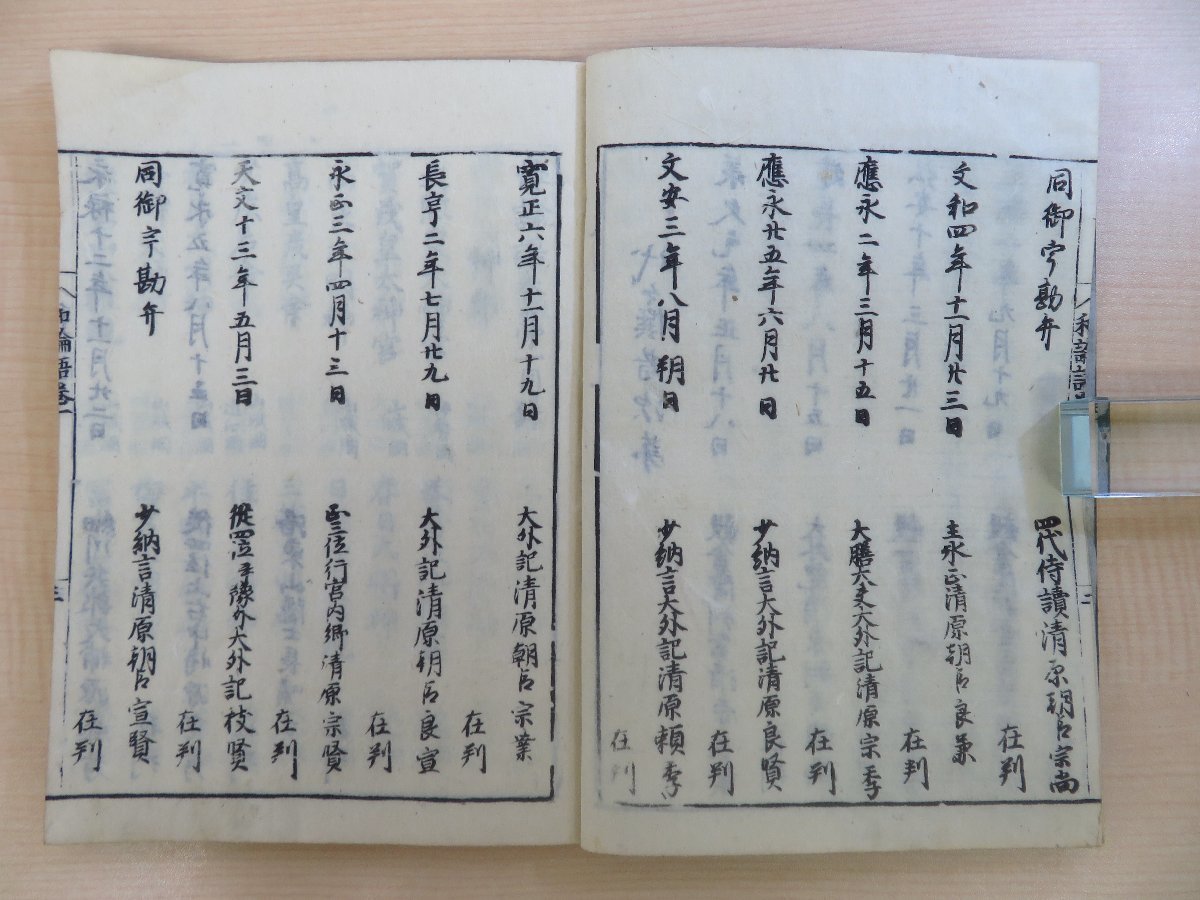 同御宇勘弁
四代侍讀清原朝臣宗尚
在判
文和四年十一月廿三日
主水正清原朝臣良兼
在判
應永二年三月十五日
大膳大夫大外記清原宗季
在判
應永廿五年六月廿日
少納言大外記清原良賢
在判
文安三年八月朔日
少納言大外記清原頼季
在判
寛正六年十一月十九日
大外記清原朝臣宗業
在判
長亨二年七月廿九日
大外記清原朝臣良宣
在判
永正三年四月十三日
正三位行宮内卿清原宗賢
在判
天文十三年五月三日
從四位下 外大外記枝賢
在判
同御宇勘弁
少納言清原朝臣宣賢
在判
和論語巻一
三